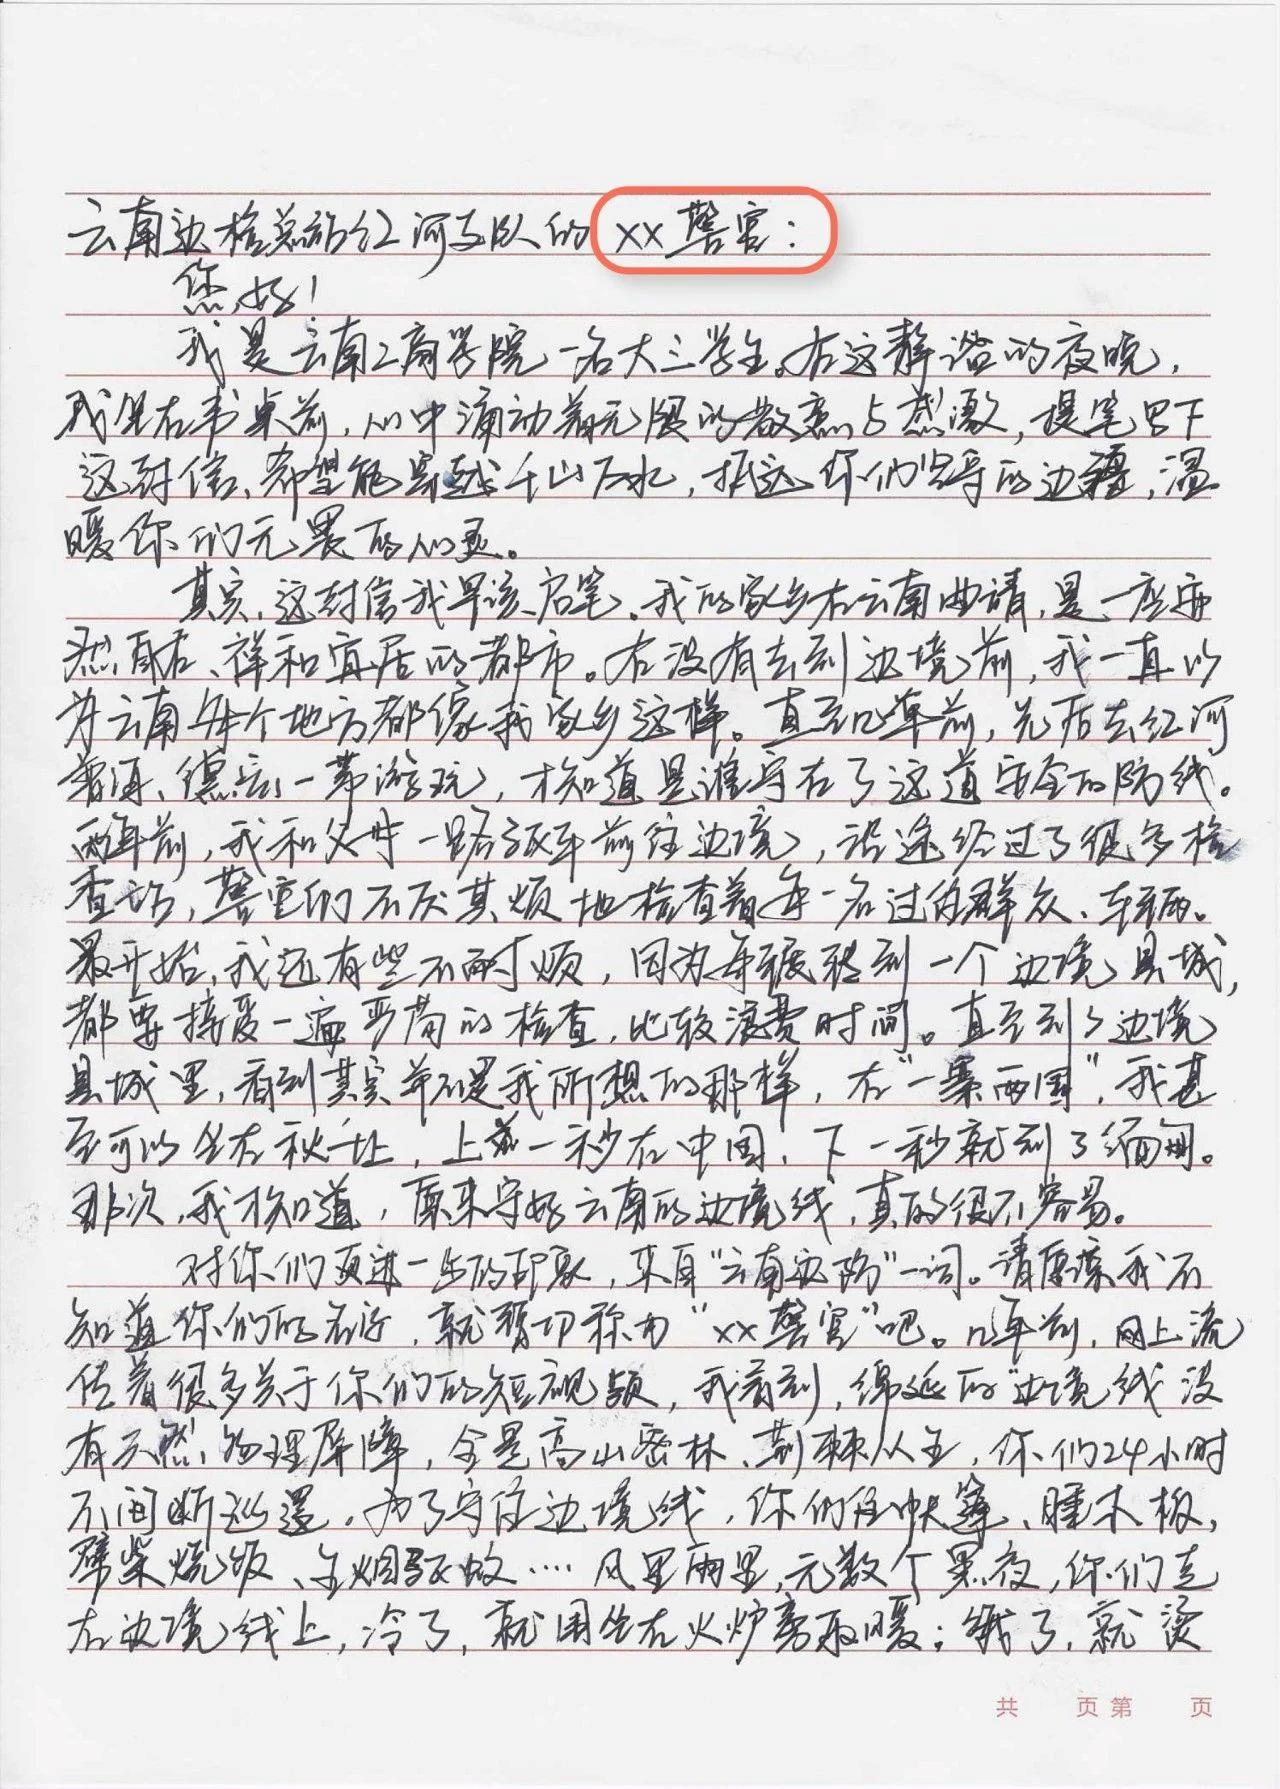 云南边检总站红河支队的xx警官：
您好！
我是云南工商学院一名大三学生。在这静谧的夜晚，
我坐在书桌前，心中涌动着无限的敬意与感激，提笔写下
这封信、希望能穿越千山万水，抵达你们坚守的边疆，温
暖你们无畏的心灵。
其实，这封信我早该启笔。我的家乡在云南曲靖，是一座安
然自若、祥和宜居的都市。在没有去到边境前，我一直以
为云南每个地方都像我家乡这样。直至几年前，先后去红河
普洱、德宏一带游玩，才知道是谁守在了这道安全的防线。
两年前，我和父母一路驱车前往边境，沿途经过了很多检
查站，警官们不厌其烦地检查着每一名过往群众、车辆。
最开始，我还有些不耐烦，因为每辗转到一个边境县城，
都要接受一遍严苛的检查，比较浪费时间。直至到了边境
县城里，看到其实并不是我所想的那样，在“一寨两国”，我甚
至可以坐在秋千上，上一秒在中国，下一秒就到了缅甸。
那次，我才知道，原来守好云南的边境线，真的很不容易。
对你们更进一步的印象，来自“云南边防”一词。请原谅我不
知道你们的名讳，就暂切称为“xx警官”吧。几年前，网上流
传着很多关于你们的短视频，我看到，绵延的边境线没
有天然物理屏障，全是高山密林、荆棘丛生，你们24小时
不间断巡逻，为了守住边境线，你们住帐篷、睡木板，
劈柴烧饭、生烟驱蚊……风里雨里，无数个黑夜，你们走
在边境线上，冷了，就围坐在火炉旁取暖；饿了，就烫
共 页 第 页